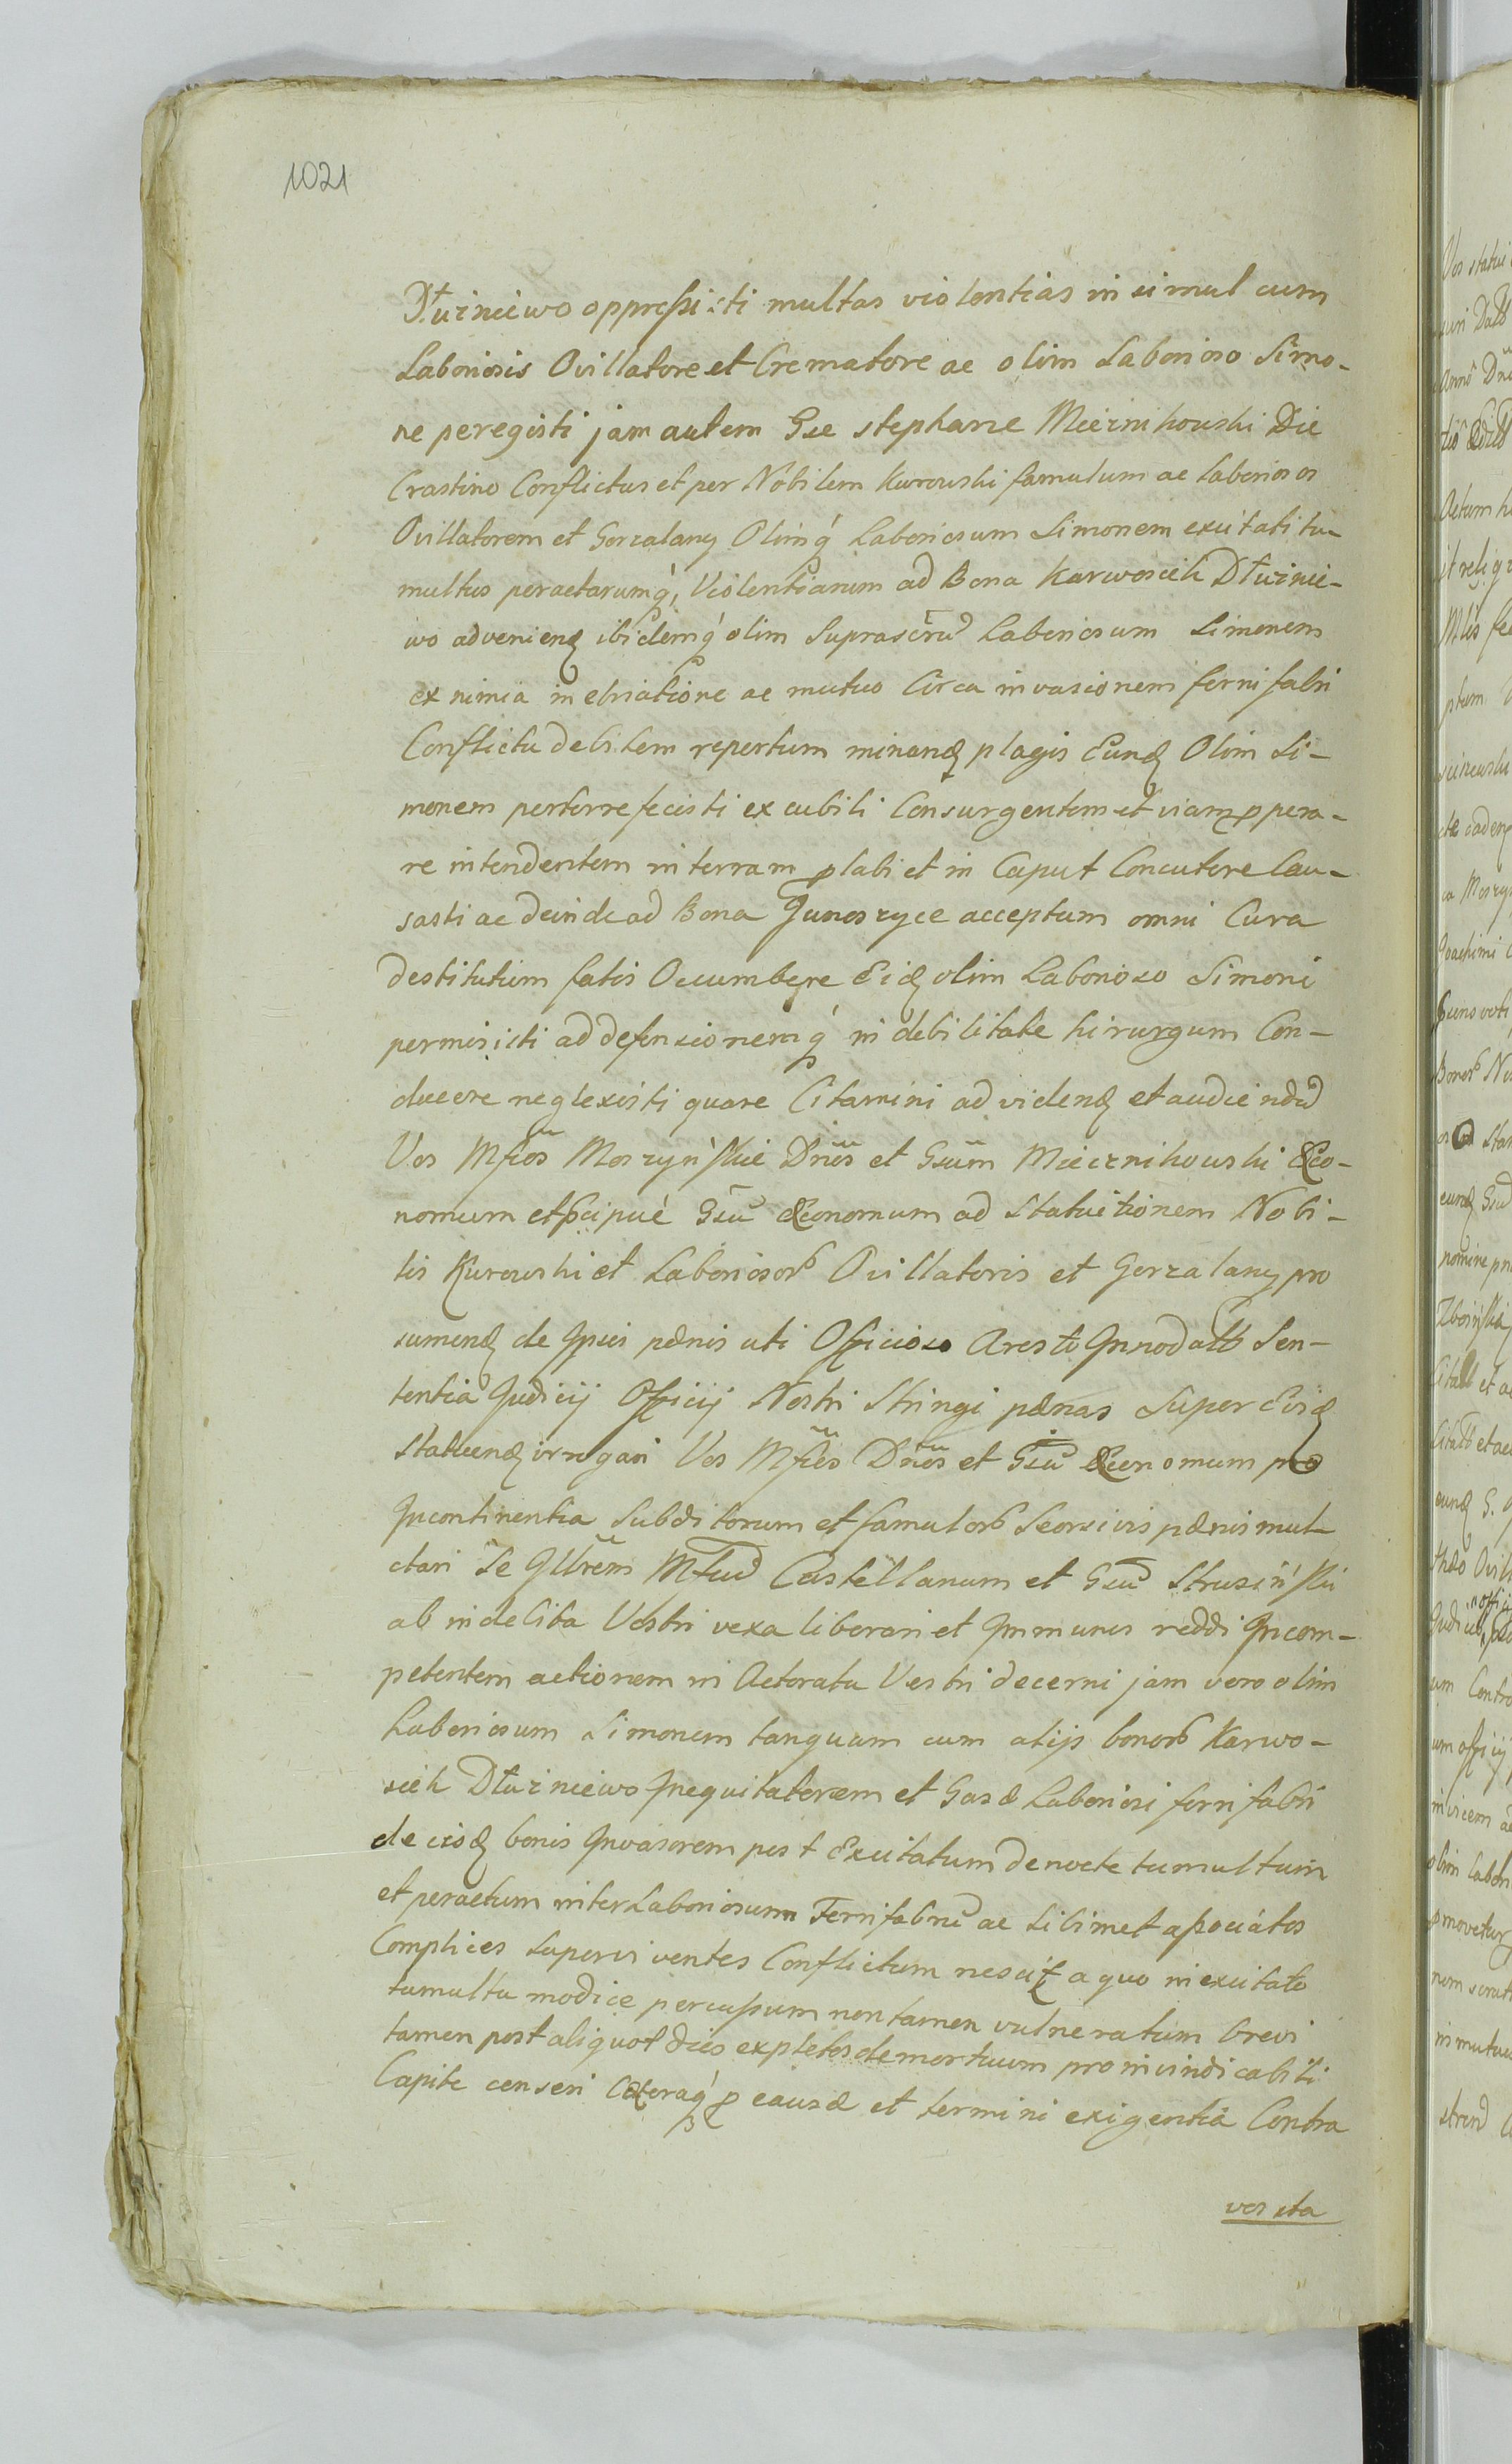 1021
Dłuźniewo oppressisti multas violentias insimul cum
Laboriosis Ovillatore et Crematore ac olim Laborioso Simo-
ne peregisti jam autem Gse Stephane Miecznikowski Die
Crastino Conflictus et per Nobilem Kurowski famulum ac laboriosos
Ovillatorem et Gorzalany Olimq́ Laboriosum Simonem excitati tu-
multus peractarumq́, Violentiarum ad Bona Karwosieki Dłuźnie-
wo advenienq ibidemq́ olim Suprascrũ Laboriosum Simonem
ex nimia inebriatione ac mutuo Circa invasionem ferri fabri
Conflictu debilem repertum minanq plagis Eunq Olim Si-
monem perterrefecisti ex cubili Consurgentem et viam ppera-
re intendentem in terram plabi et in Caput Concutere Cau-
sasti ac deinde ad Bona Junoszyce acceptum omni Cura
destitutum fatis Occumbere Eidq olim Laborioso Simoni
permisisti ad defensionemq́ in debilitate hirurgum Con-
ducere neglexisti quare Citamini ad videnq et audiendũ
Vos Mfcos Moszyńskie Dnos et Gsum Miecznikowski Œco-
nomum et pcipuè Gsũ Œconomum ad Statuitionem Nobi-
lis Kurowski et Laboriosorb Ovillatoris et Gorzalany pro
sumenq de Ipsis pœnis uti Officioso Aresto Innodatb Sen-
tentia Judicij Officij Nostri Stringi pœnas Super Eisq
Statuenq irrogari Vos Mfcos Dnos et Gsũ Œconomum pro
Incontinentia Subditorum et famulorb Seorsivis pœnis mul-
ctari Se Illrem Mfcũ Castellanum et Gsũ Struziński
ab indebita Vestri vexa liberari et Immunes reddi Incom-
petentem actionem in Actoratu Vestri decerni jam vero olim
Laboriosum Simonem tanquam cum alijs bonorb Karwo-
sieki Dłuźniewo Inequitatorem et Casæ Laboriosi ferri fabri
de iisq bonis Invasorem post Excitatum de nocte tumultum
et peractum inter Laboriosum Ferrifabrũ ac Sibimet associatos
Complices Superviventes Conflictum nescit a quo in excitato
tumultu modice percussum non tamen vulneratum brevi
tamen post aliquot dies expletos demortuum pro invindicabili
Capite censeri Cæteraq́ p causæ et termini exigentia Contra
vos sta